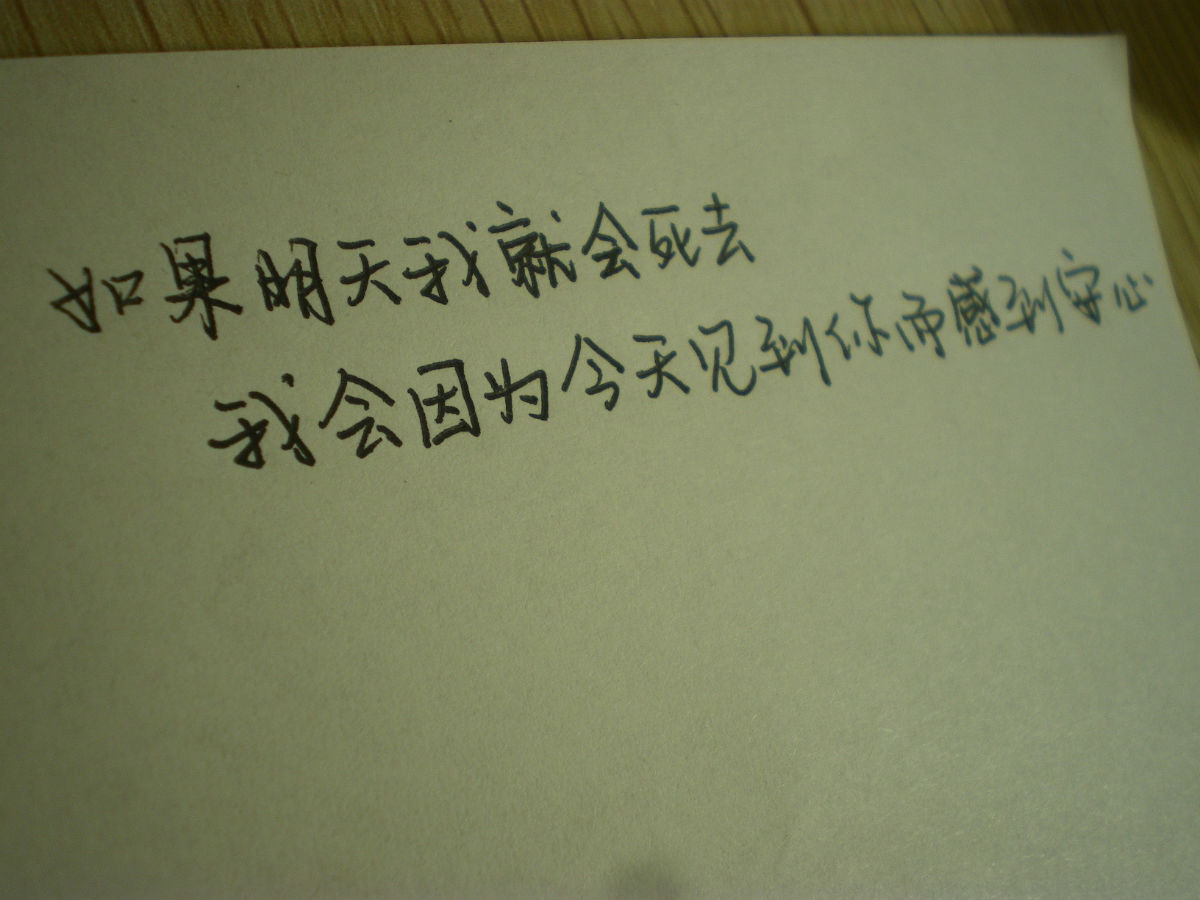 如果明天我就会死去
我会因为今天见到你而感到安心